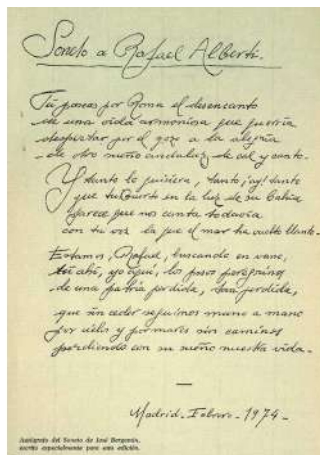 Soneto a Rafael Alberti.
Tú paseas por Roma el desencanto
de una vida armoniosa que querría
despertar por el gozo a la alegría
de otro sueño andaluz de cal y canto.
Y tanto lo quisiera, tanto, ¡ay! tanto
que tu Puerto en la luz de su bahía
parece que nos canta todavía
con tu voz la que el mar ha vuelto llanto.
Estamos, Rafael, buscando en vano,
tú ahí, yo aquí, los pasos peregrinos
de una patria perdida, perdida,
que sin ceder seguimos mano a mano
por cielos y por mares sin caminos
perdiendo con su sueño nuestra vida.
Madrid. Febrero. 1974.
Autógrafo del Soneto de José Bergamín,
escrito especialmente para esta edición.